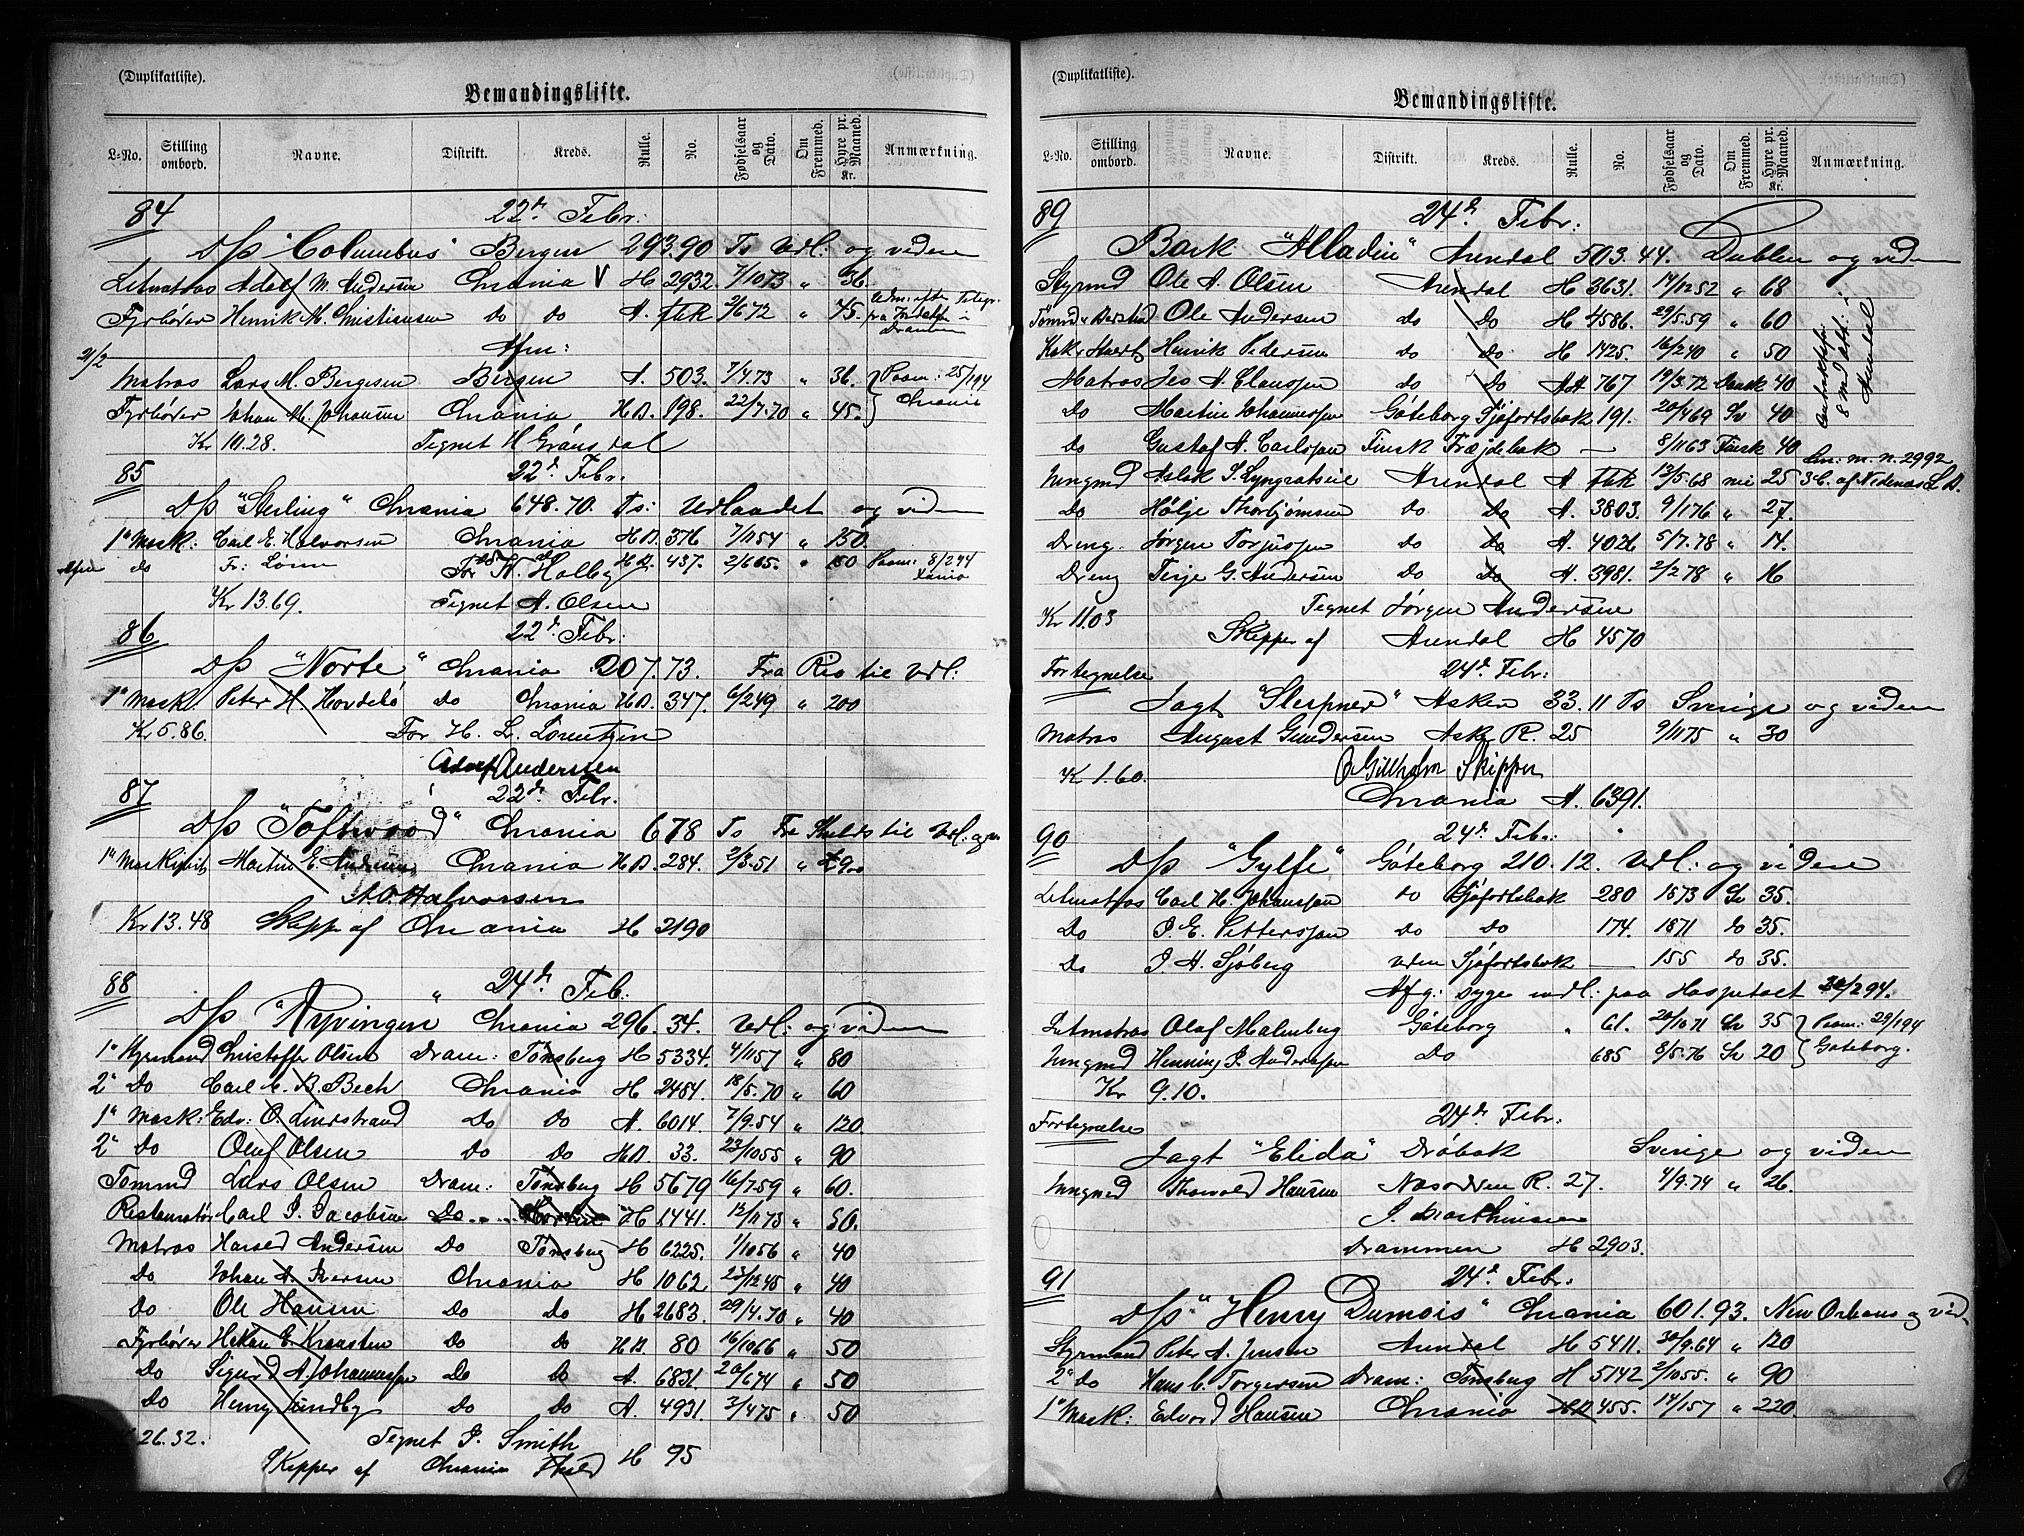 (Duplikatliste).
Bemandingsliste.
L-No. Stilling ombord. Navne. Distrikt. Kreds. Rulle. No. Fødselsaar og Dato. Om Fremmed. Hyre pr. Maaned. Kr. Anmærkning.
84 22de Febr:
D/S "Columbus" Bergen 293.90 Ts Udl: og viden
Letmatros Adolf M. Andersen Chrania V H 2932. 7/10 73 " 36.
Fyrbøder Henrik M. Christiansen do do A. 2/6 72 " 45.
Afm:
21/2
Matros Lars M. Bergesen Bergen A. 503. 7/4.73 " 36. Paam: 25/1 94
Fyrbøder Johan M. Johansen Chrania H.D. 198. 22/7.70 " 45. Chrania
Kr 10.28. Tegnet H Gränsdal
85 22de Febr.
D/S "Sterling" Chrania 648.70. Ts: Udlandet og viden
1ste Mask: Carl E. Halvorsen Chrania H.D. 376 7/11 54 " 150.
do Fr: do do H.D. 437. 2/6 65. " 150 Paam: 8/2 94
For N. Holby
Kr 13.69. Tegnet A. Olsen
86 22de Febr.
D/S "Norte" Chrania 207.73. Fra Rio til Udl.
1ste Mask Peter H. Hovdebö do Chrania H.D. 347. 6/2 49 " 200
Kr 5.86. For H. L. Lorentzen
Adolf Anderssen
87 22de Febr.
D/S "Toftwood" Chrania 678 Ts Fra Shields til Udl: og
1ste Maskinist Martin E. Andersen Chrania H.D. 284. 2/3.51 "
A. O. Halvorsen
Kr 13.48 Skipper af Chrania H 2190
88 24de Feb.
D/S "Ryvingen" Chrania 296.34. Udl: og viden
1ste Styrmand Christoffer Olsen Dram: Tönsberg H 5334. 4/11 57 " 80
2den Do Carl C. B. Bech Chrania H 2484. 18/5.70 " 60
1ste Mask: Edv: O. Lindstrand Do Do A. 6014. 7/9.54 " 120.
2den Do Oluf Olsen Do Do H.D. 33. 23/10 55 " 90
Tömmd Lars Olsen Dram: Tönsberg H 5679 16/7.59 " 60.
Restauratör Carl P. Jacobsen Do H 1441. 12/11 73 " 50.
Matros Harald Andersen Do Tönsberg H 6225. 1/10 56 " 40
Do Johan A. Iversen Chrania H 1062. 23/12 45 " 40
Do Ole Hansen Do Do H 2683. 29/4.70 " 40
Fyrböder Håkan E. Kransten Do Do H.D. 80 16/10 66 " 50
Do Sigurd A. Johannessen Do Do A. 6831. 20/6 74 " 50
Do Henry Sundby Do Do A. 4931. 2/4 75 " 50
26.32. Tegnet P. Smith
Skipper af Chrania H 95
(Duplikatliste).
Bemandingsliste.
L-No. Stilling ombord. Navne. Distrikt. Kreds. Rulle. No. Fødselsaar og Dato. Om Fremmed. Hyre pr. Maaned. Kr. Anmærkning.
89 24de Febr:
Bark "Alladin" Arendal 503.44. Dublin og viden
Styrmd Ole A. Olsen Arendal H 3631. 17/12 52 " 68
Ole Andersen do Do H 4586. 29/5.59 " 60
Kok Henrik Pedersen do Do H 1425. 16/2 40 " 50
Matros Jes A. Clausson do Do AA 767 19/3.72 Dansk 40
Do Martin Johannesson Göteborg Sjöfartsbok 191. 20/4 69 Sv 40
Do Gustaf A. Carlsson Finsk Fræjdebok — 8/11 63 Finsk 40
Jungmd Aslak S. Lyngratseie Arendal A 13/5.68 nei 25
Do Hölje Thorbjörnsen do Do A. 3803. 9/1 76 " 27.
Dreng. Jörgen Torjussen do Do A. 4026 5/7.78 " 14.
Dreng Terje G. Andersen Do Do A. 3981. 2/2 78 " 16
Tegnet Jørgen Andersen
Kr 11.03 Skipper af Arendal H 4570
Fortegnelse 24de Febr:
Jagt "Slepner" Asker 33.11 Ts Sverige og viden
Matros August Gundersen Asker R. 25 9/11 75 " 30
Kr 1.60. O Gillholm Skipper
Chrania A. 6391.
90 24de Febr:
D/S "Gylfe" Göteborg 210.12. Udl: og videre
Letmatros Carl H. Johansson do Sjöfartsbok 280 1873 Sv 35.
Do P. E. Pettersson do do 174. 1871 do 35.
Do P. A. Sjöberg uden Sjöfartsbok — 155 do 35.
Afg: syge indl: paa Hospitalet 24/2 94.
Letmatros Olaf Malmberg Göteborg " 61. 20/10 71 Sv 35 Paam: 29/1 94
Jungmd Henning P. Andersson Do 685 8/5.76 Sv 20 Göteborg.
Kr 9.10.
Fortegnelse 24de Febr:
Jagt "Elida" Dröbak Sverige og viden
Jungmd Thorvald Hansen Næsodden R. 27. 4/9.74 " 26.
J. Mathinsen
Drammen H 2903.
91 24de Febr:
D/S "Henry Dumois" Chrania 601.93. New Orleans og vid.
Styrmand Peter A. Jensen Arendal H 5411. 30/9.64 " 120
2den do Hans C. Torgersen Dram: Tönsberg H 5142 2/10 55. " 90
1ste Mask: Edvard Hansen Chrania 455. 14/1 57 " 220.